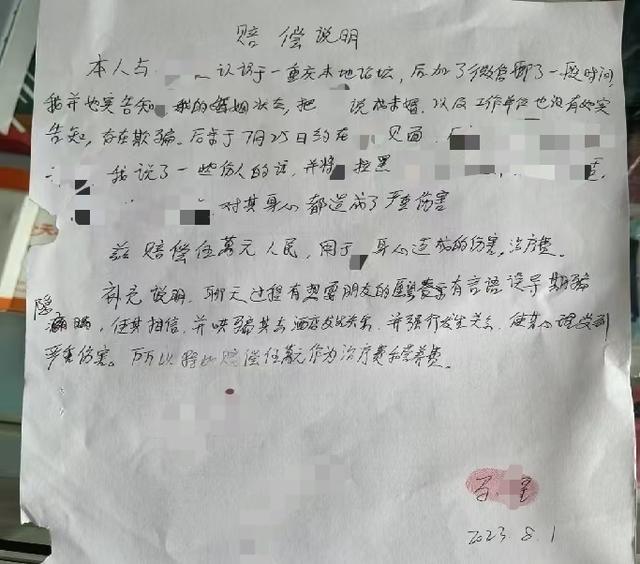 赔偿说明
本人与 认识于一重庆本地论坛，后加了微信聊了一段时间，
我并 如实告知 我的婚姻状态，把 说成未婚，以及工作单位也没有如实
告知，存在欺骗。后来于7月25日约在 见面，
我说了一些伤人的话，并将 拉黑
对其身心都造成了严重伤害
兹赔偿伍萬元人民，用于 身心造成的伤害，治疗费。
补充说明，聊天过程有想要朋友的 有言语误导欺骗
隐瞒，使其相信，并哄骗其去酒店发生关系，并强行发生关系，使其心理受到
严重伤害。所以 赔偿伍萬元作为治疗费和营养费。
2023.8.1